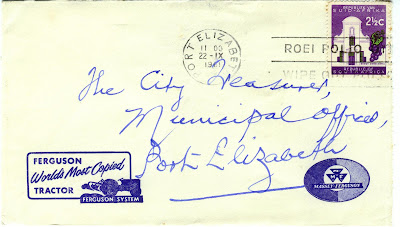 REPUBLIEK VAN
SUID-AFRIKA
2½c
REPUBLIC OF
SOUTH AFRICA
PORT ELIZABET
11 00
22-IX
1961
ROEI POLIO
WIPE O
The City Treasurer,
Municipal Offices,
Port Elizabeth
FERGUSON
World's Most Copied
TRACTOR
FERGUSON SYSTEM
MASSEY-FERGUSON